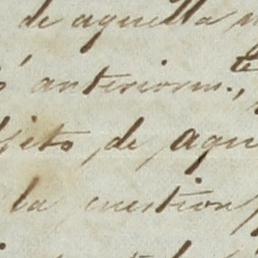 de aquella
anteriorm.te,
de aqu
la cuestion